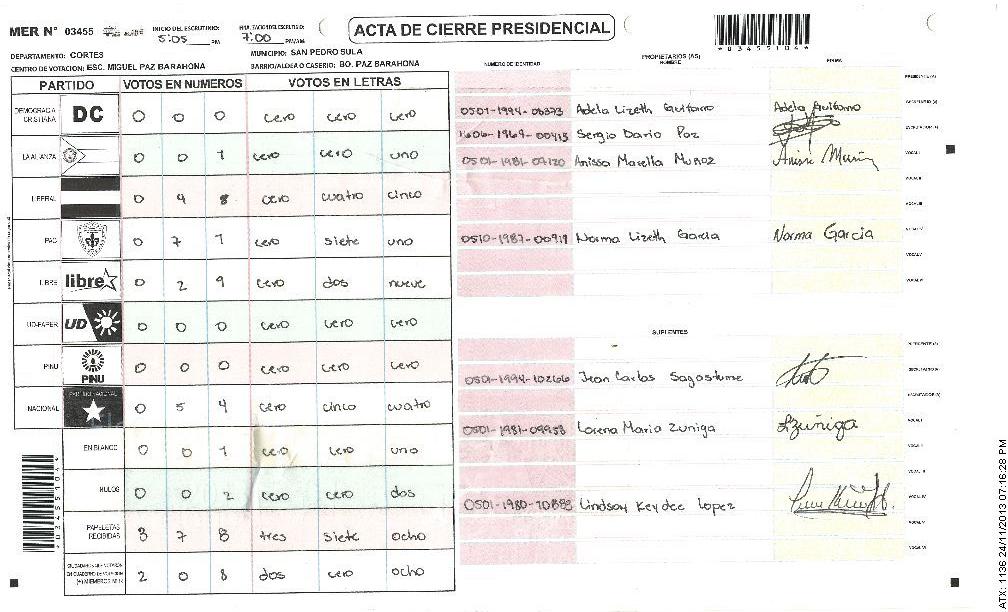 MER N° 03455 INICIO DEL ESCRUTINIO: 5:05 PM FINALIZACION DEL ESCRUTINIO: 7:00 PM/AM
ACTA DE CIERRE PRESIDENCIAL
*0345510 4*
DEPARTAMENTO: CORTES MUNICIPIO: SAN PEDRO SULA
CENTRO DE VOTACION: ESC. MIGUEL PAZ BARAHONA BARRIO/ALDEA O CASERIO: BO. PAZ BARAHONA
PARTIDO VOTOS EN NUMEROS VOTOS EN LETRAS
DEMOCRACIA CRISTIANA DC 0 0 0 cero cero cero
LA ALIANZA 0 0 1 cero cero uno
LIBERAL 0 4 8 cero cuatro cinco
PAC 0 7 1 cero siete uno
LIBRE libre 0 2 9 cero dos nueve
UD-FAPER UD 0 0 0 cero cero cero
PINU PINU 0 0 0 cero cero cero
NACIONAL PARTIDO NACIONAL 0 5 4 cero cinco cuatro
EN BLANCO 0 0 1 cero cero uno
NULOS 0 0 2 cero cero dos
PAPELETAS RECIBIDAS 3 7 8 tres siete ocho
2 0 8 dos cero ocho
PROPIETARIOS (AS)
NUMERO DE IDENTIDAD NOMBRE FIRMA
Adela Lizeth Quitano Adela Quitano
1606-1969-00415 Sergio Dario Paz
0501-1981-07120 Anissa Marella Muñoz
0510-1987-00919 Norma Lizeth Garcia Norma Garcia
SUPLENTES
0501-1994-10266 Jean Carlos Sagastume
0501-1981-09953 Lorena Maria Zuniga LZuñiga
0501-1980-10883 Lindsay Keydee Lopez
ATX: 1136 24/11/2013 07:16:28 PM